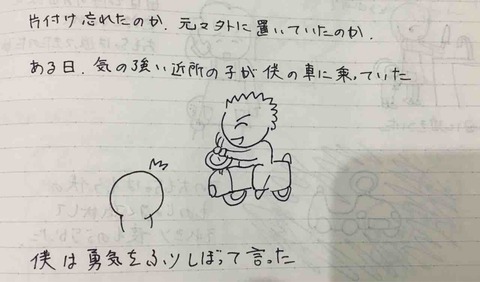 片付け忘れたのか、元々外に置いていたのか、
ある日、気の強い近所の子が僕の車に乗っていた
僕は勇気をふりしぼって言った